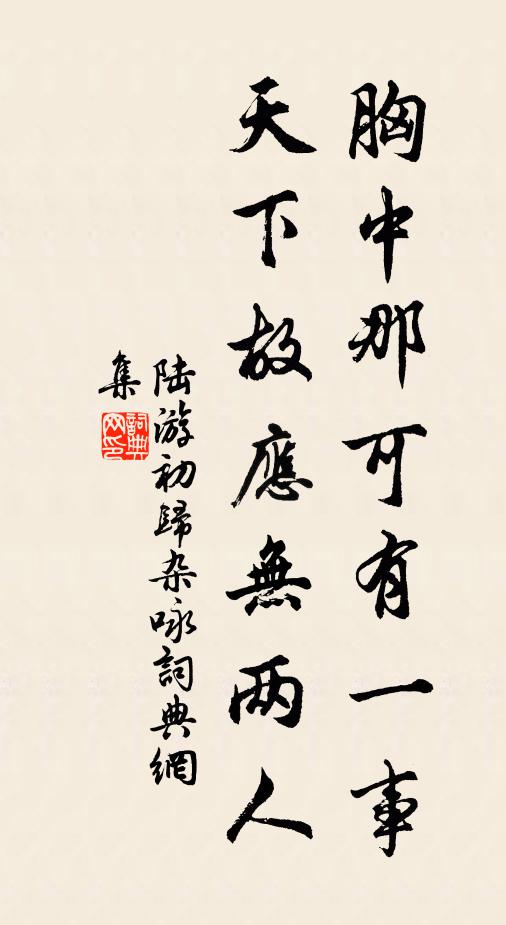 胸中那可有一事
天下故應無两人
陆游初歸杂咏詞典網
集
詞典
网印